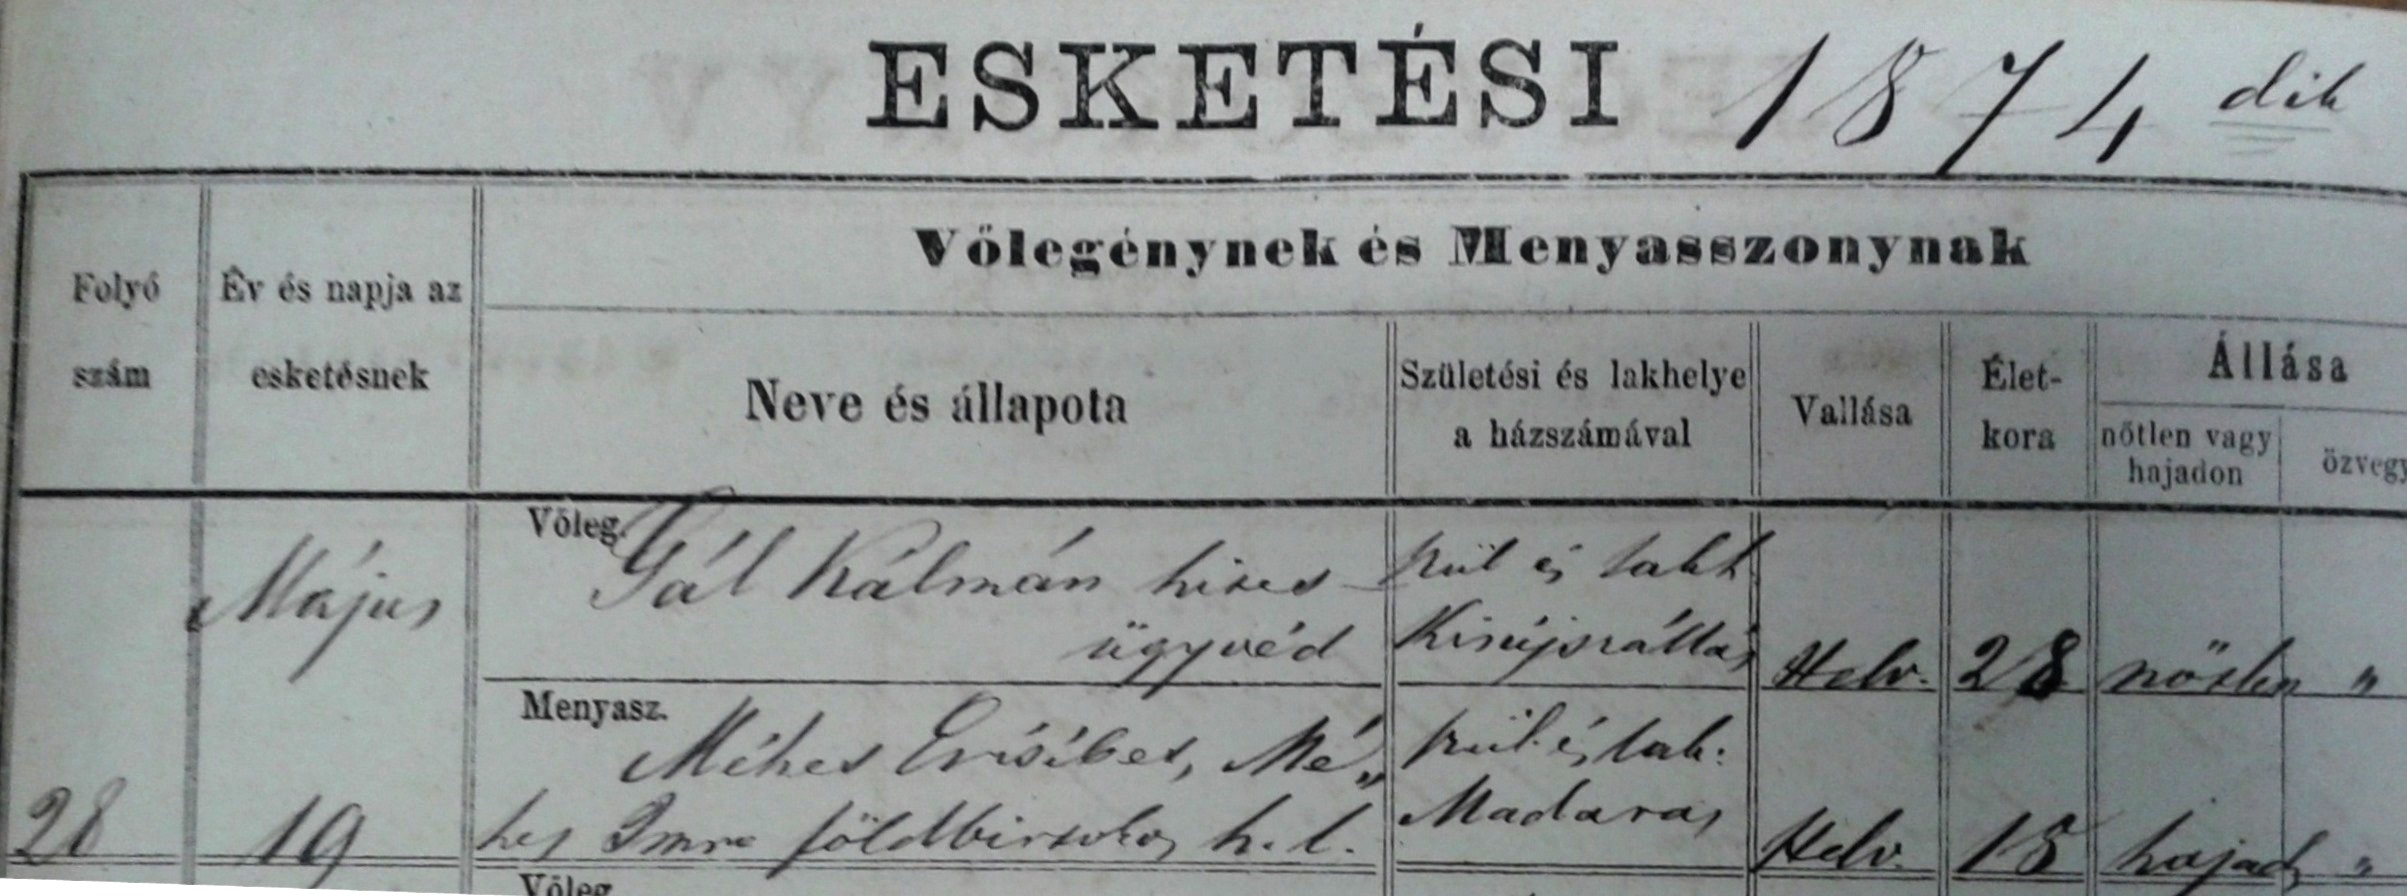 ESKETÉSI 1874 dik
Vőlegénynek és Menyasszonynak
Folyó szám
Év és napja az esketésnek
Neve és állapota
Születési és lakhelye
a házszámával
Vallása
Élet-
kora
Állása
nőtlen vagy
hajadon
özvegy
Május
19
28
Vőleg. Gál Kálmán hites
ügyvéd
szül és lakh
Kisújszállás
Helv. 28 nőtlen "
Menyasz.
Méhes Ersébet, Mé„
hes Imre földbirtokos h. l.
szül. és lak:
Madaras
Helv. 18 hajad "
Vőleg